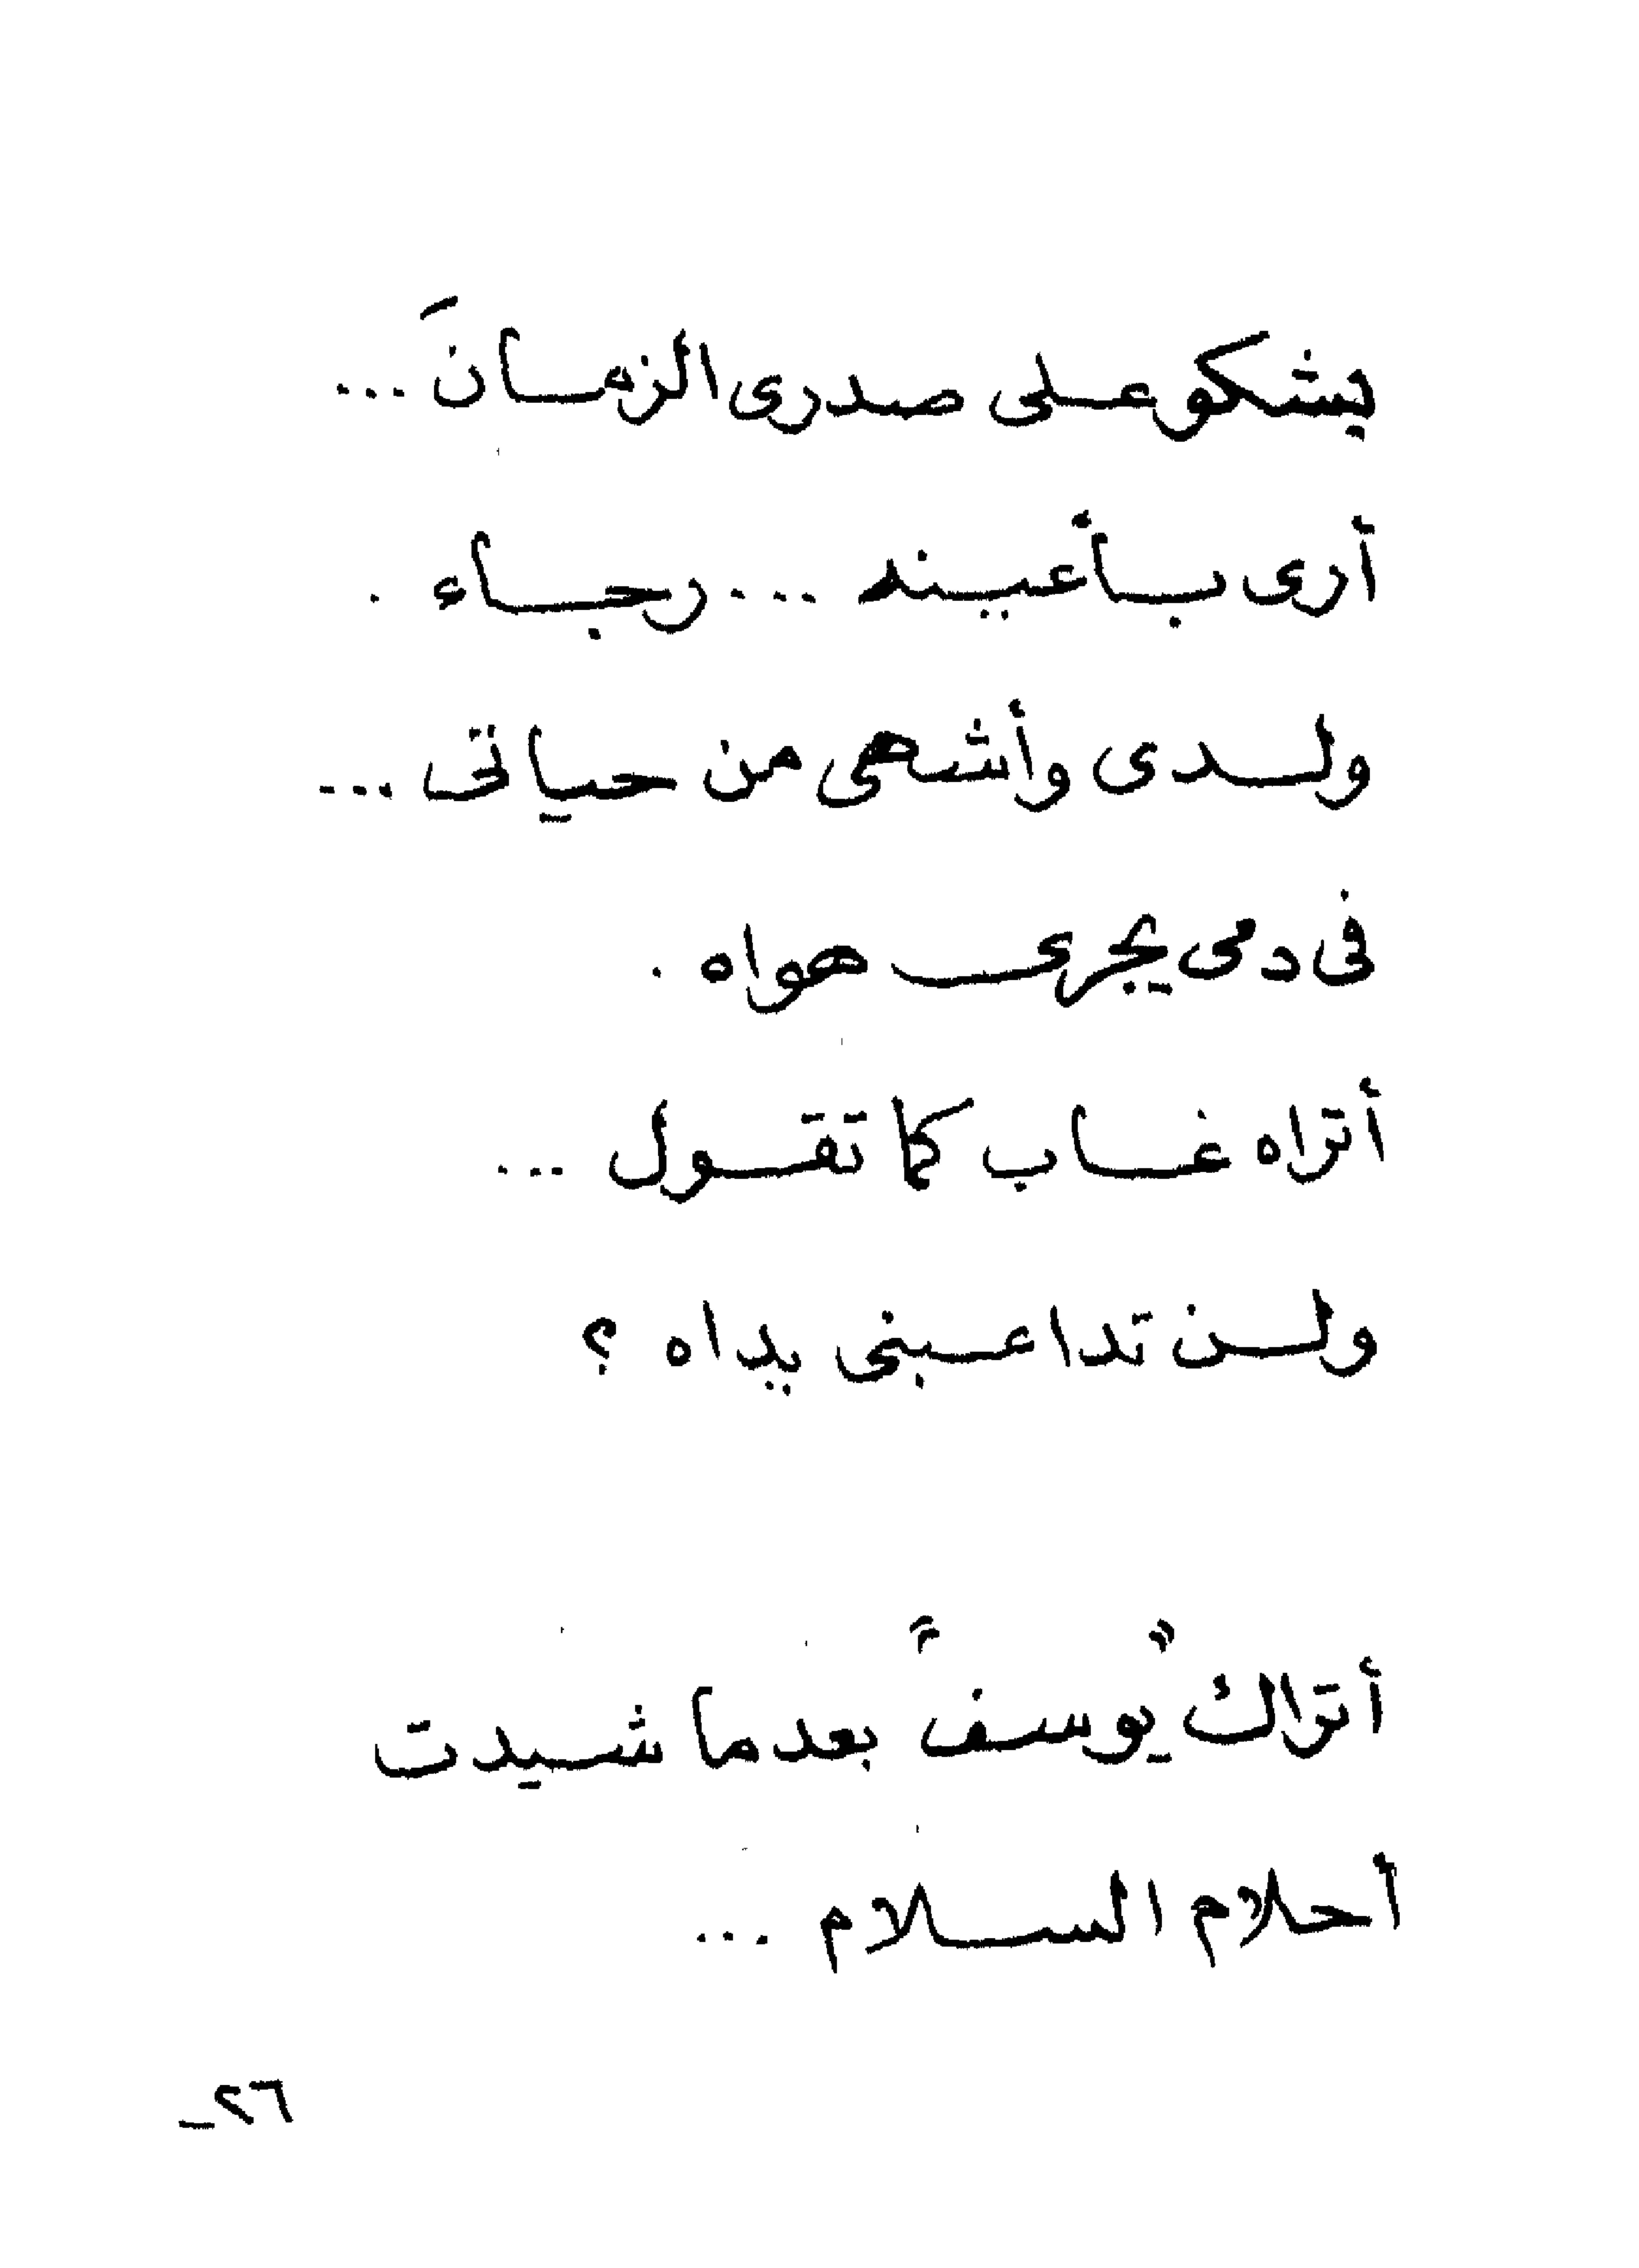 يشكو على صدرى الزمانَ ...
أرى بأعينه ... رجاء .
ولدى وأشهى من حياتى ...
فى دمى يجرى هواه .
أتراه غاب كما تقول ...
ولن تداعبنى يداه ؟
أتراك "يوسف" بعدما شيدت
أحلام السلام ...
٢٦_